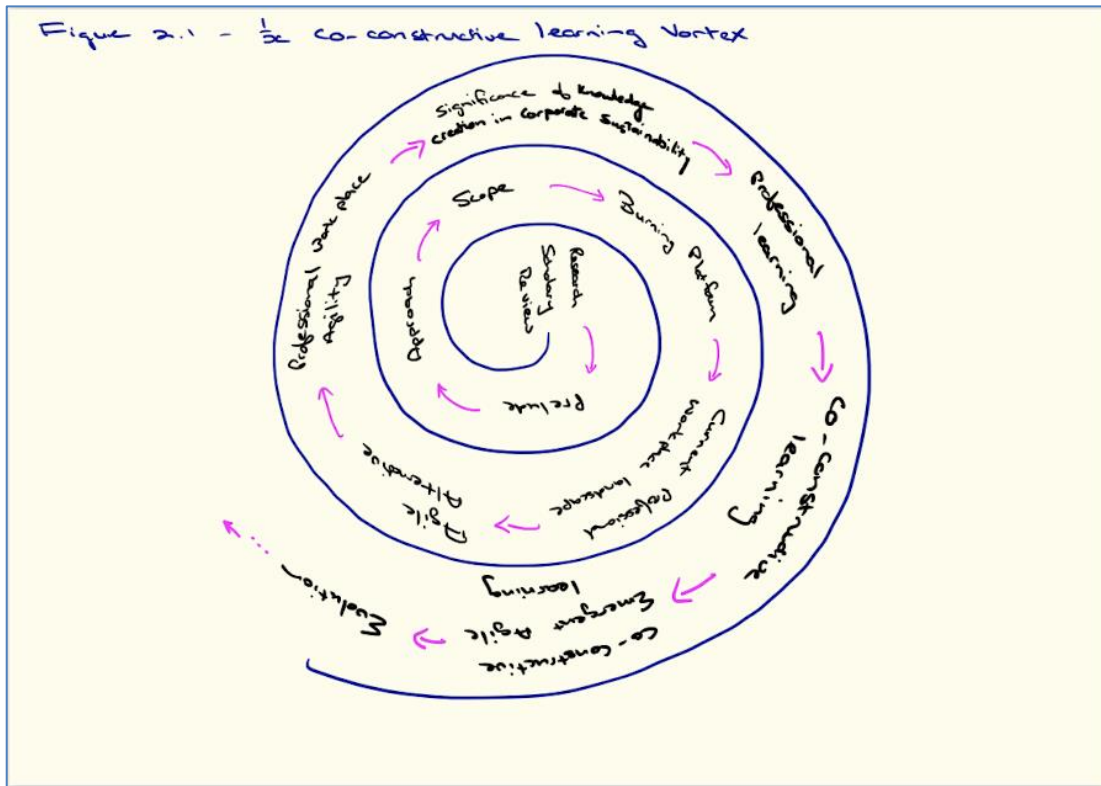 Figure 2.1 - 1/x co-constructive learning Vortex
Research
Scholary
Review
Prelude
Approach
Scope
Burning Platform
Current Professional
workplace landscape
Agile
Alternative
Professional work place
Agility
Significance of knowledge
creation in Corporate Sustainability
Professional
learning
Co-constructive
learning
Co-constructive
Emergent Agile
learning
Evolution